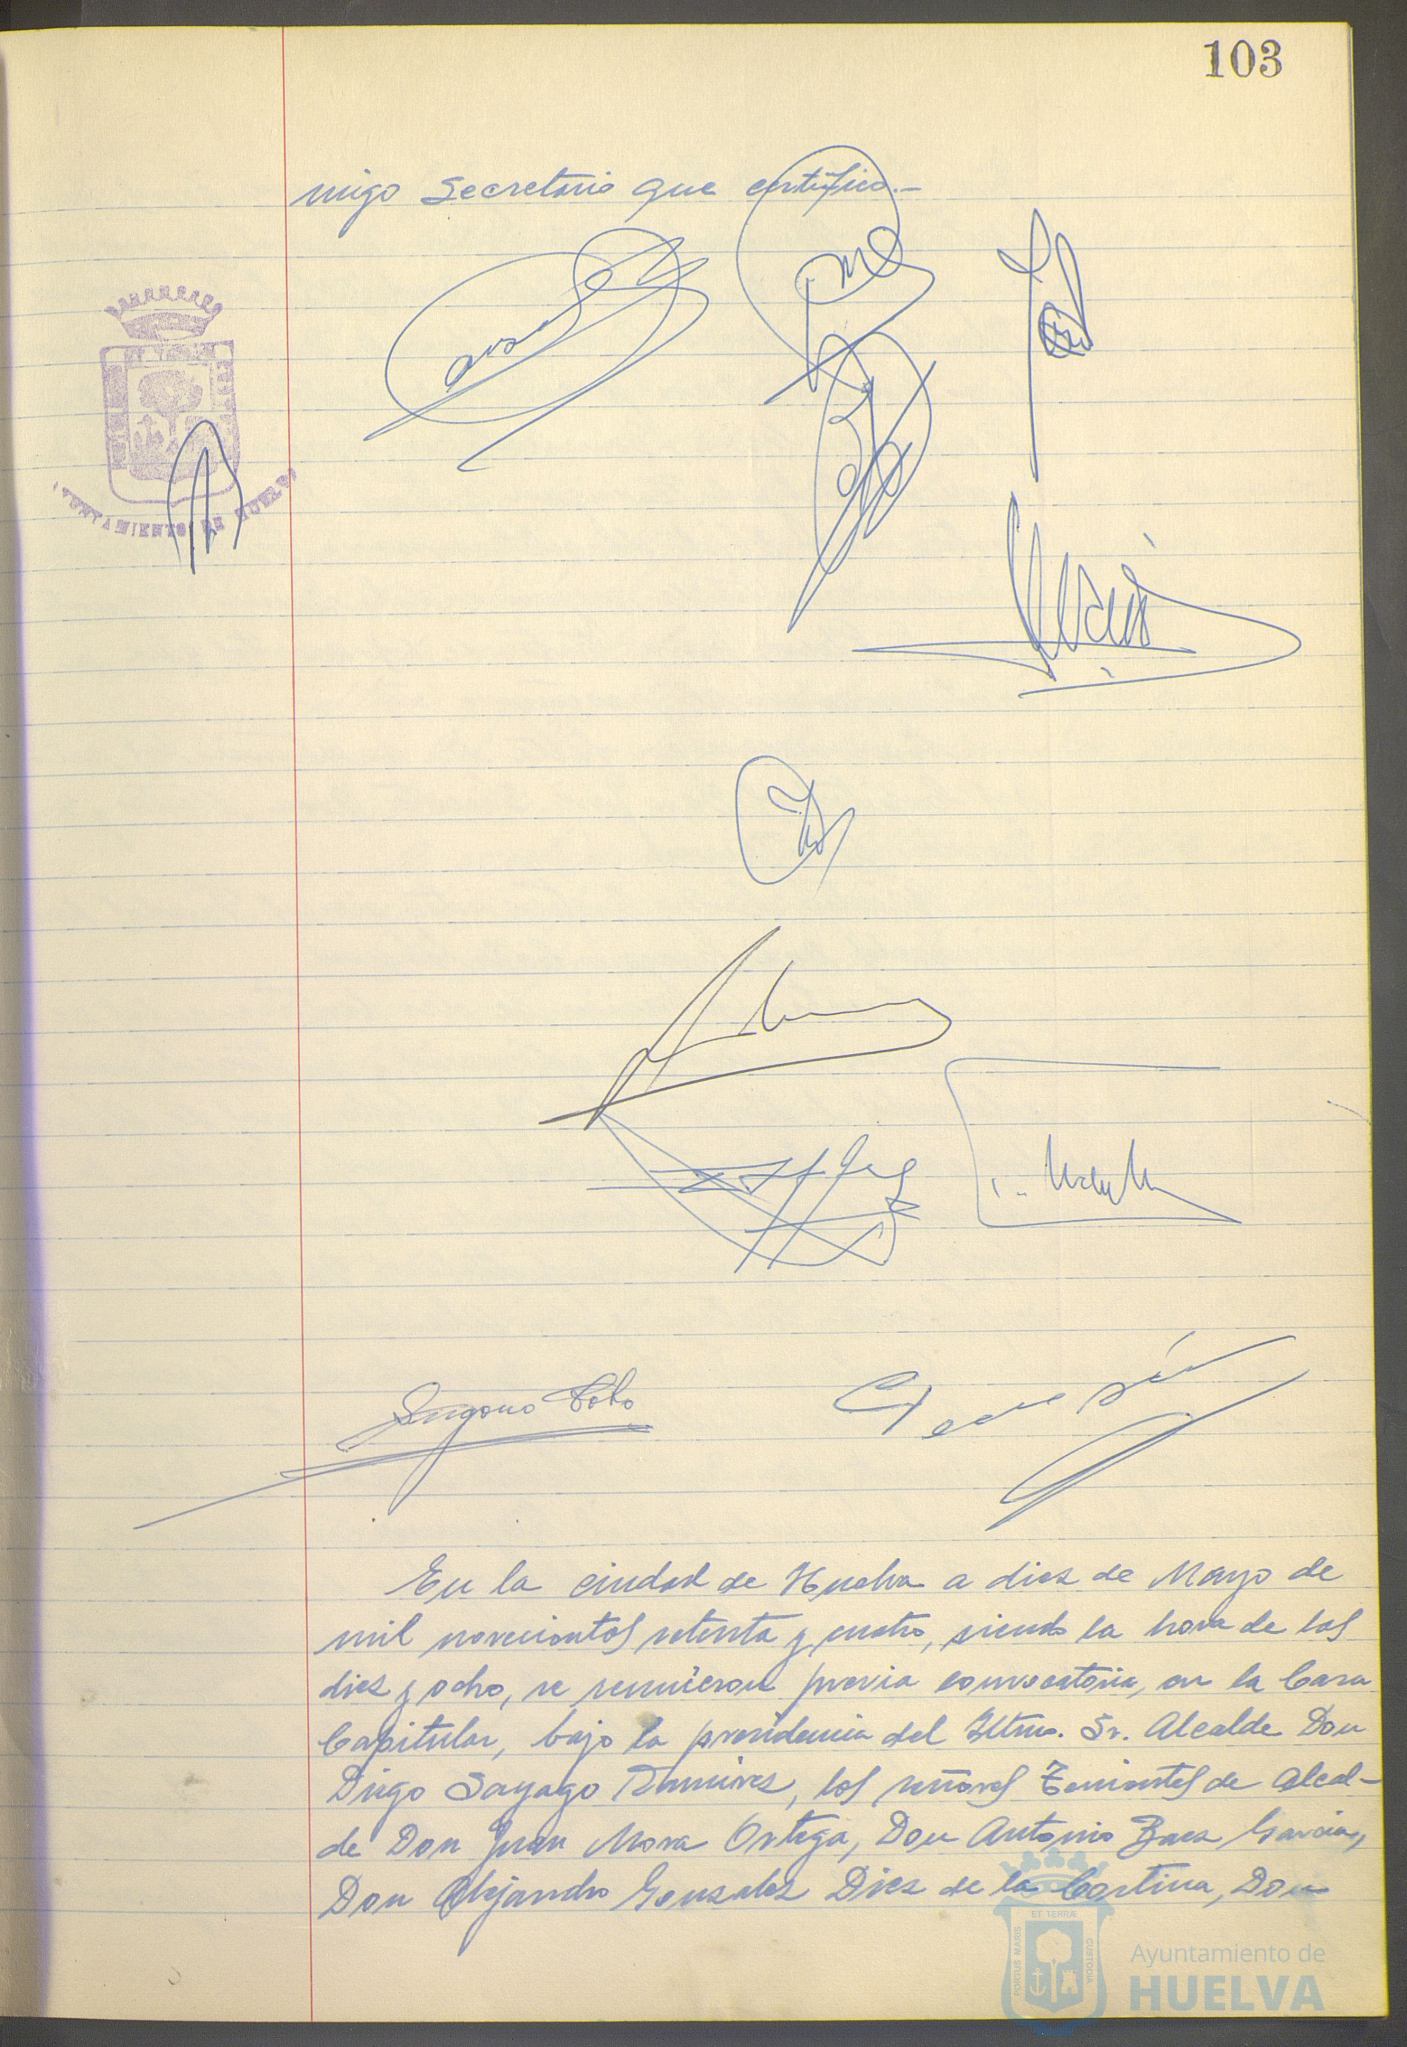 103
migo Secretario que certifico.-
AYUNTAMIENTO DE HUELVA
En la ciudad de Huelva a diez de Mayo de
mil novecientos setenta y cuatro, siendo la hora de las
diez y ocho, se reunieron previa convocatoria, en la Casa
Capitular, bajo la presidencia del Iltmo. Sr. Alcalde Don
Diego Sayago Ramirez, los señores Tenientes de Alcal-
de Don Juan Mora Ortega, Don Antonio Baez Garcia,
Don Alejandro Gonzalez Diez de la Cortina, Don
PORTUS MARIS ET TERRAE CUSTODIA
Ayuntamiento de
HUELVA